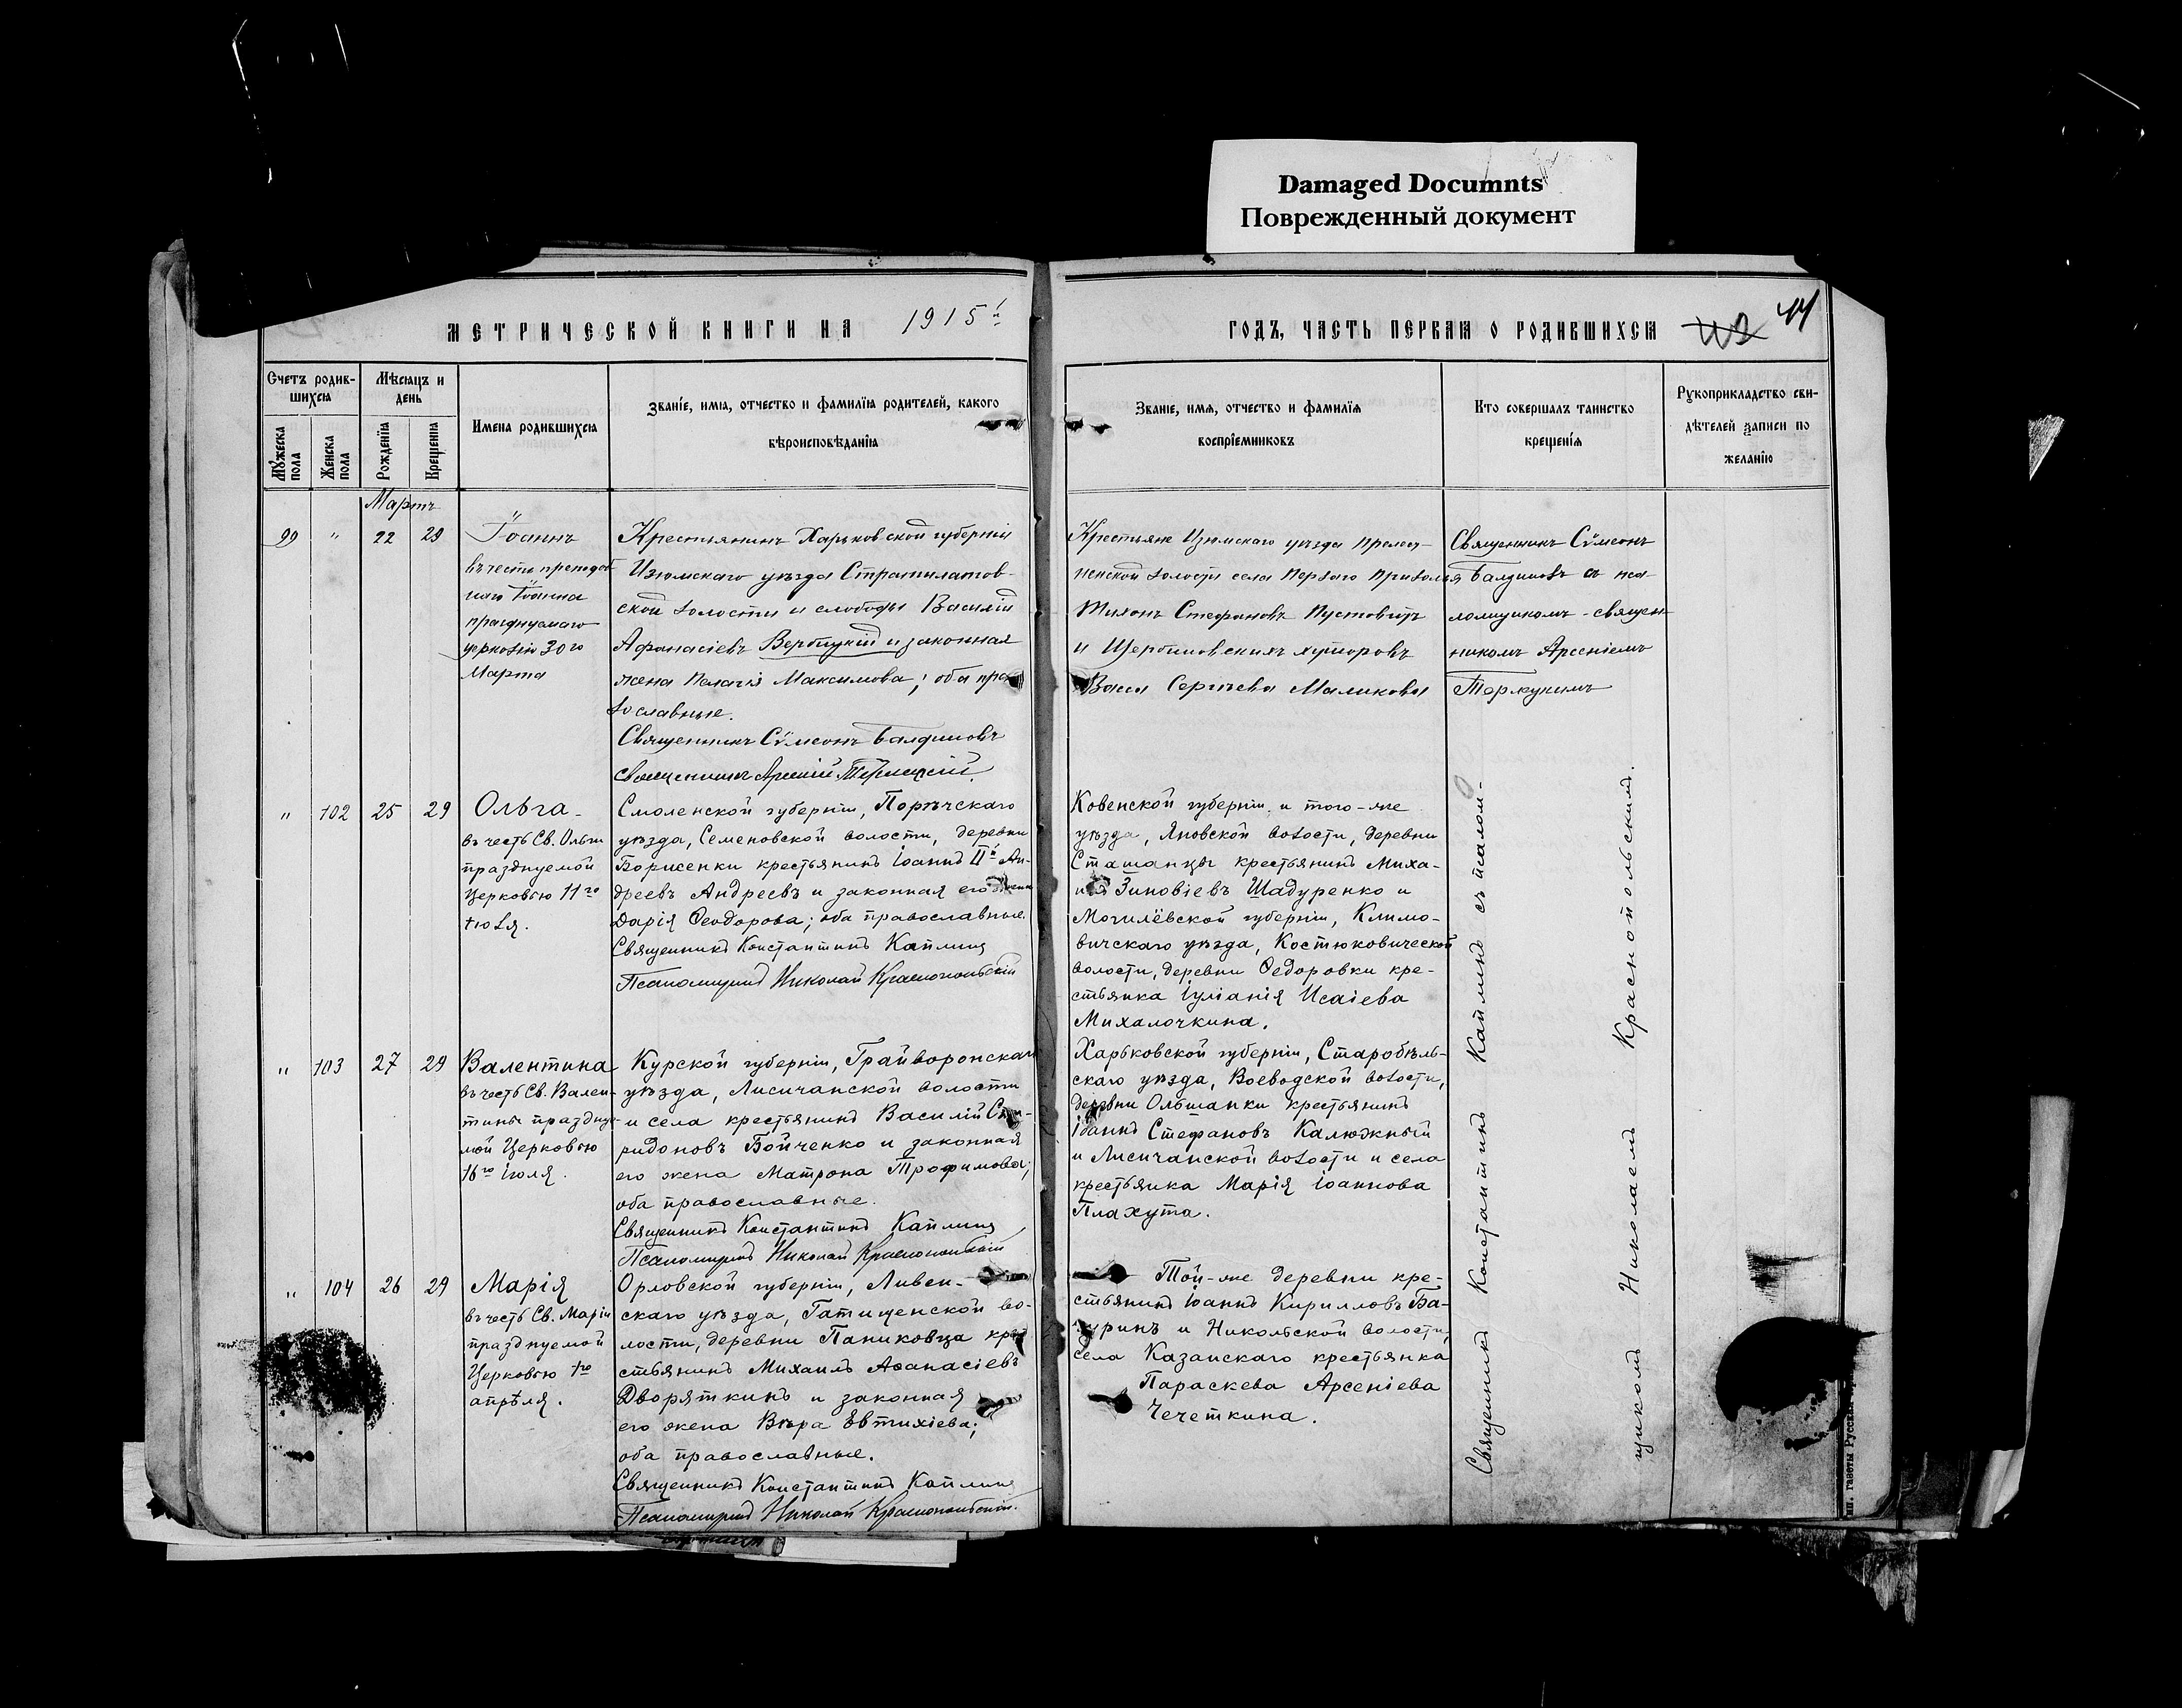 Damaged Documnts
Поврежденный документ
МЕТРИЧЕСКОЙ КНИГИ НА 1915й
ГОДЪ, ЧАСТЬ ПЕРВАЯ О РОДИВШИХСЯ
44
Счетъ родив-
шихся
Мѣсяцъ и
день
Мужеска
пола
Женска
пола
Рожденія
Крещенія
Имена родившихся
Званіе, имя, отчество и фамилія родителей, какого
вѣроисповѣданія
Званіе, имя, отчество и фамилія
воспріемниковъ
Кто совершалъ таинство
крещенія
Рукоприкладство сви-
дѣтелей записи по
желанію
Мартъ
99 " 22 29
Іоаннъ
въ честь преподоб
наго Іоанна
празднуемаго
церковію 30го
Марта
Крестьянинъ Харьковской губерніи
Изюмскаго уѣзда Стратилатов-
ской волости и слободы Василій
Афанасіевъ Вербицкій и законная
жена Пелагія Максимова; оба пра
вославные.
Священникъ Сѵмеонъ Балдиновъ
Священникъ Арсеній
Крестьяне Изюмскаго уѣзда
волости села Перваго Приволья
Тихонъ Стефановъ Пустовитъ
и Щербиновскихъ хуторовъ
Васса Сергѣева Маликова
Священникъ Сѵмеонъ
Балдиновъ съ пса-
ломщикомъ - священ-
никомъ Арсеніемъ
" 102 25 29
Ольга
въ честь Св. Ольги
празднуемой
Церковью 11го
іюля.
Смоленской губерніи, Порѣчскаго
уѣзда, Семеновской волости, деревни
Борисенки крестьянинъ Іоаннъ IIй Ан-
дреевъ Андреевъ и законная его жена
Дарія Ѳеодорова; оба православные.
Священникъ Константинъ Каплинъ
Псаломщикъ Николай Краснопольскій
Ковенской губерніи и того-же
уѣзда, Яновской волости, деревни
Сташанцы крестьянинъ Миха-
илъ Зиновіевъ Шадуренко и
Могилёвской губерніи, Климо-
вичскаго уѣзда, Костюковической
волости, деревни Ѳедоровки кре-
стьянка Іуліанія Исаіева
Михалочкина.
" 103 27 29
Валентина
въ честь Св. Вален-
тины празднуе-
мой Церковью
16го іюля.
Курской губерніи, Грайворонскаго
уѣзда, Лисичанской волости
и села крестьянинъ Василій Спи-
ридоновъ Бойченко и законная
его жена Матрона Трофимова;
оба православные.
Священникъ Константинъ Каплинъ
Псаломщикъ Николай Краснопольскій
Харьковской губерніи, Старобѣль-
скаго уѣзда, Воеводской волости,
деревни Ольшанки крестьянинъ
Іоаннъ Стефановъ Калюжный
и Лисичанской волости и села
крестьянка Марія Іоаннова
Плахута.
" 104 26 29
Марія
въ честь Св. Маріи
празднуемой
Церковью 1го
апрѣля.
Орловской губерніи, Ливен-
скаго уѣзда, Гатищенской во-
лости, деревни Паниковца кре
стьянинъ Михаилъ Аѳанасіевъ
Дворяткинъ и законная
его жена Вѣра Евтихіева;
оба православные.
Священникъ Константинъ Каплинъ
Псаломщикъ Николай Краснопольскій.
Той-же деревни кре-
стьянинъ Іоаннъ Кирилловъ Ба-
туринъ и Никольской волости,
села Казанскаго крестьянка
Параскева Арсеніева
Чечеткина.
Священникъ Константинъ Каплинъ съ псалом-
щикомъ Николаемъ Краснопольскимъ.